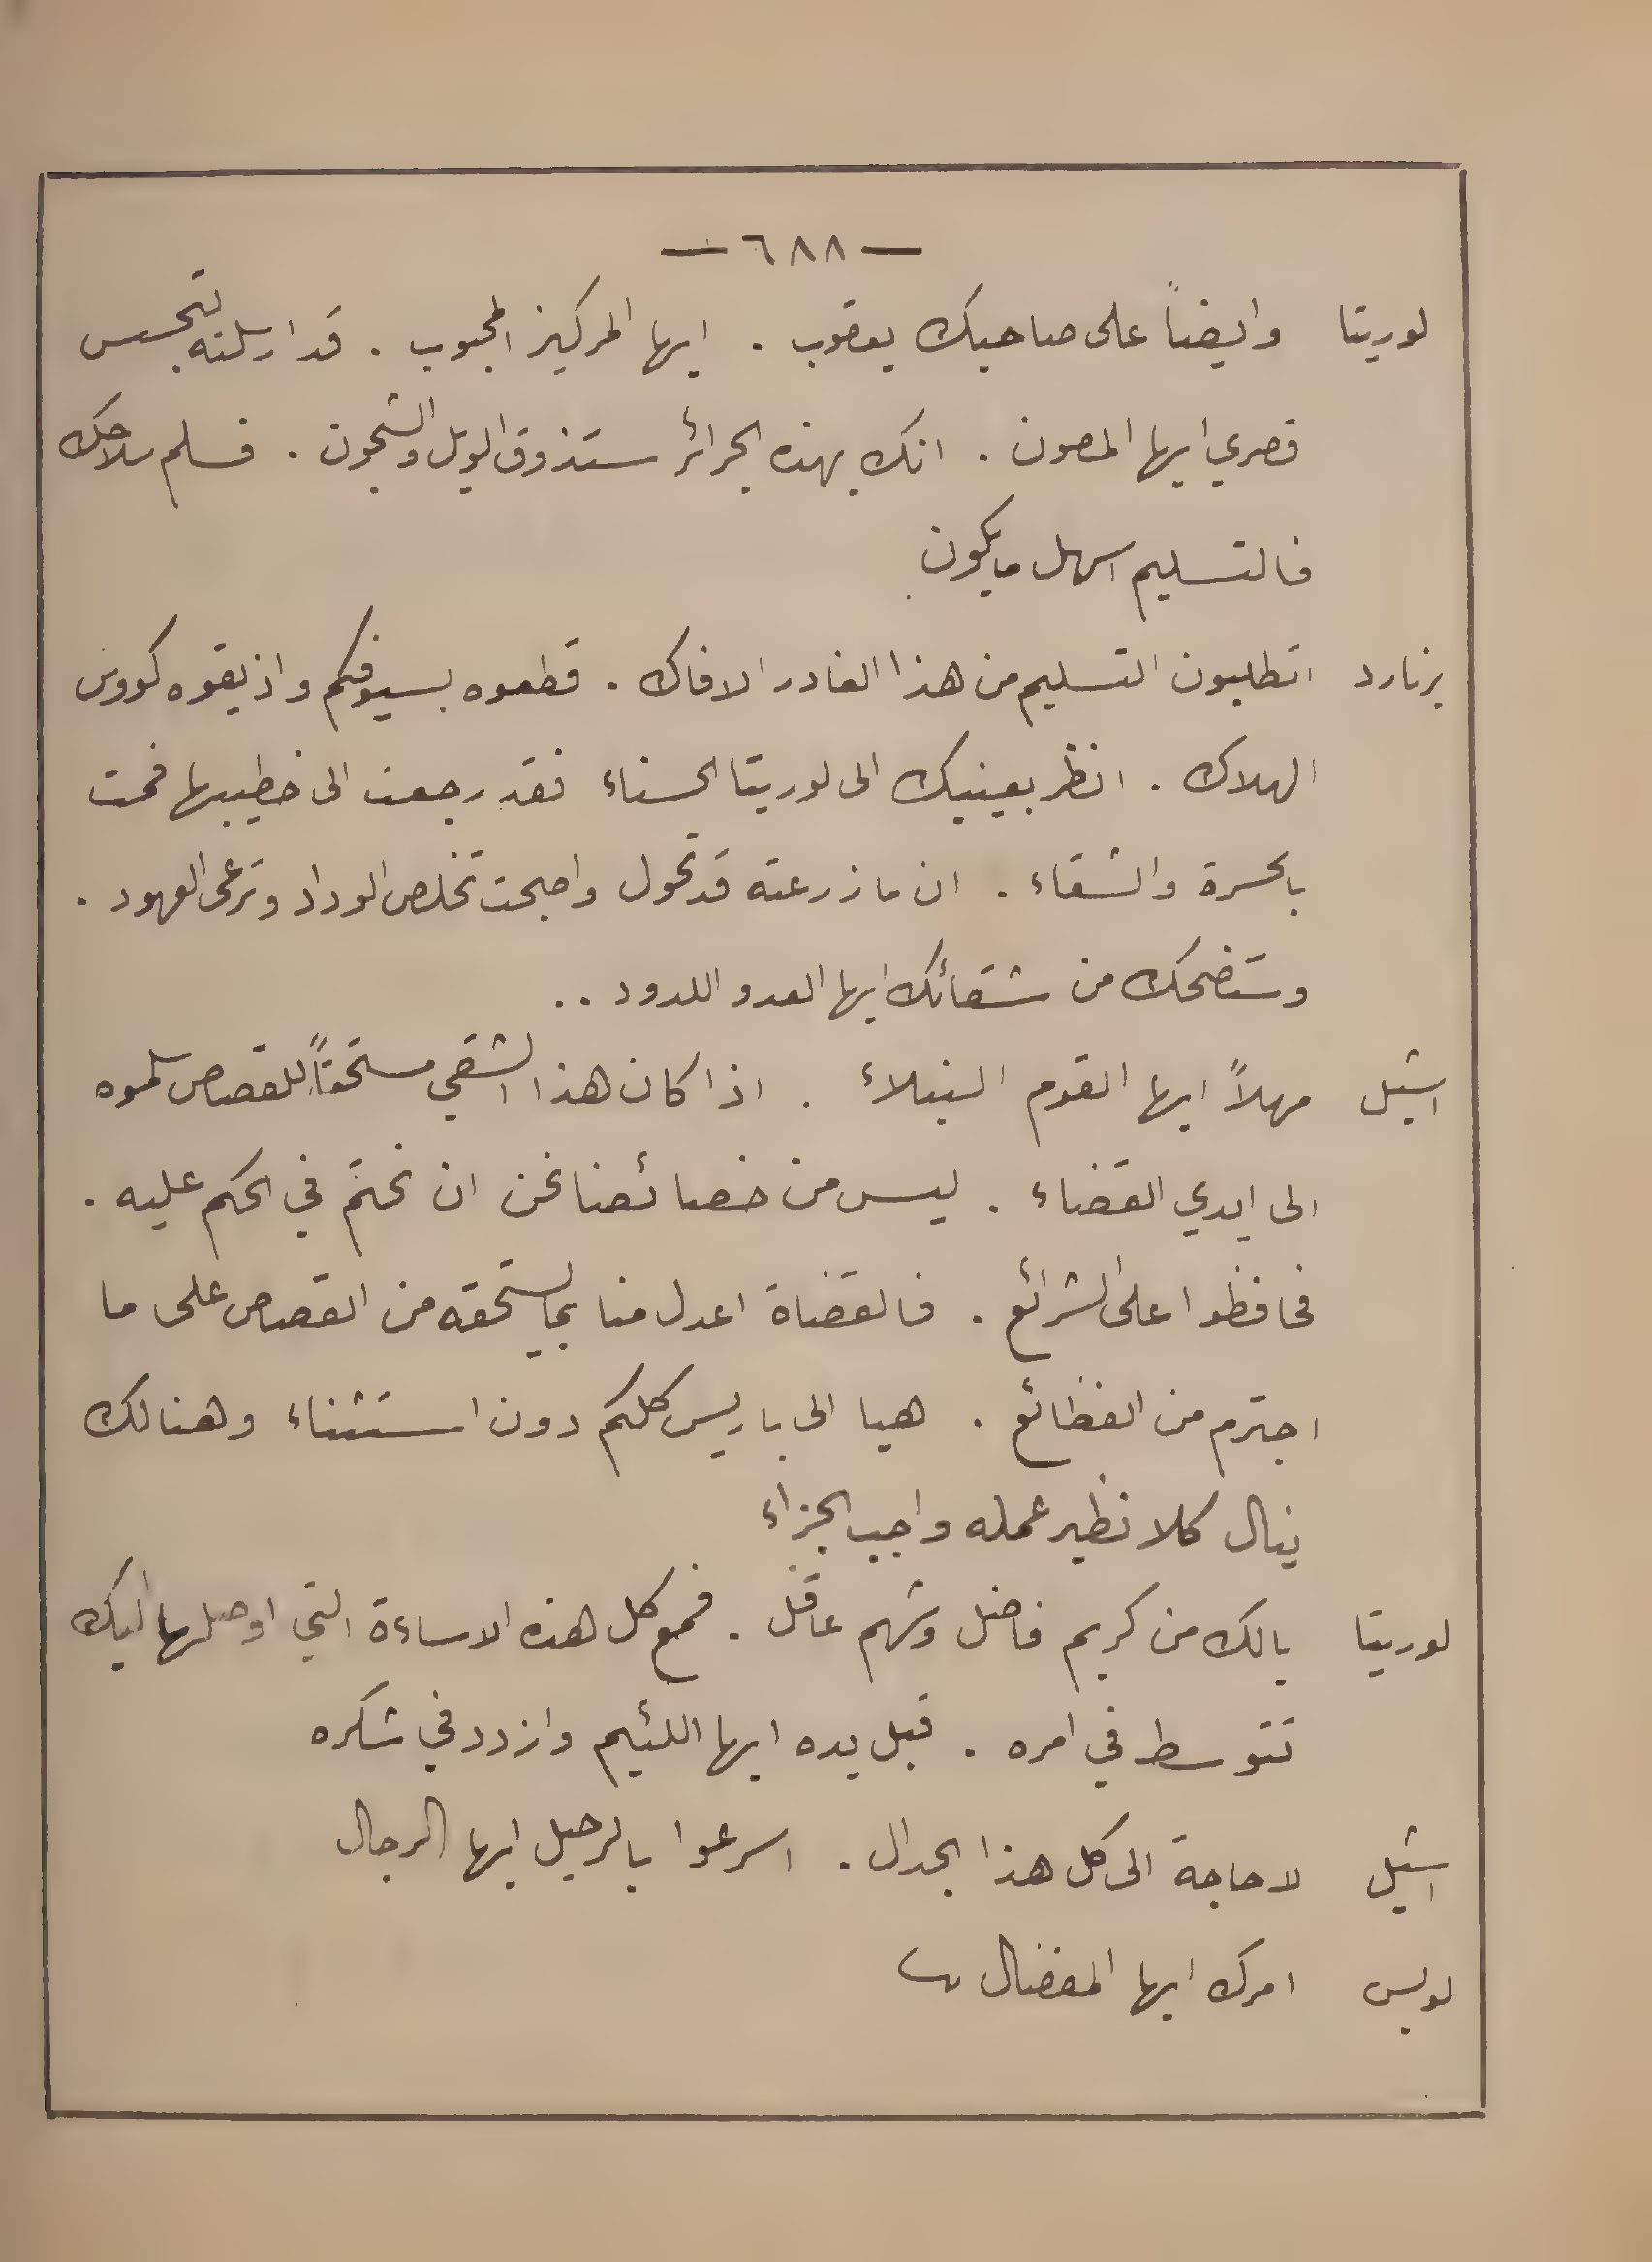 — ٦٨٨ —
لوريتا وايضاً على صاحبك يعقوب . ايها المركيز المحبوب . قد ارسلته لتجسس
قصري ايها المصون . انك بهذه الجرائر ستذوق الويل والشجون . فسلم سلاحك
فالتسليم اسهل ما يكون
برنارد اتطلبون التسليم من هذا الغادر الافاك . قطعوه بسيوفكم واذيقوه كووس
الهلاك . انظر بعينيك الى لوريتا الحسناء فقد رجعت الى خطيبها فمت
بالحسرة والشقاء . ان ما زرعته قد تحول واصبحت تخلص الوداد وترعى العهود .
وستضحك من شقائك ايها العدو اللدود ..
اشيل مهلاً ايها القوم النبلاء . اذا كان هذا الشقي مستحقاً للقصاص سلموه
الى ايدي القضاء . ليس من خصائصنا نحن ان نحتم في الحكم عليه .
فحافظوا على الشرائع . فالقضاة اعدل منا بما يستحقه من القصاص على ما
اجترم من الفظائع . هيا الى باريس كلكم دون استثناء وهنالك
ينال كلا نظير عمله واجب الجزاء
لوريتا يالك من كريم فاضل وشهم عاقل . فمع كل هذه الاساءة التي اوصلها اليك
تتوسط في امره . قبل يده ايها اللئيم وازدد في شكره
اشيل لا حاجة الى كل هذا الجدال . اسرعوا بالرحيل ايها الرجال
لويس امرك ايها المفضال